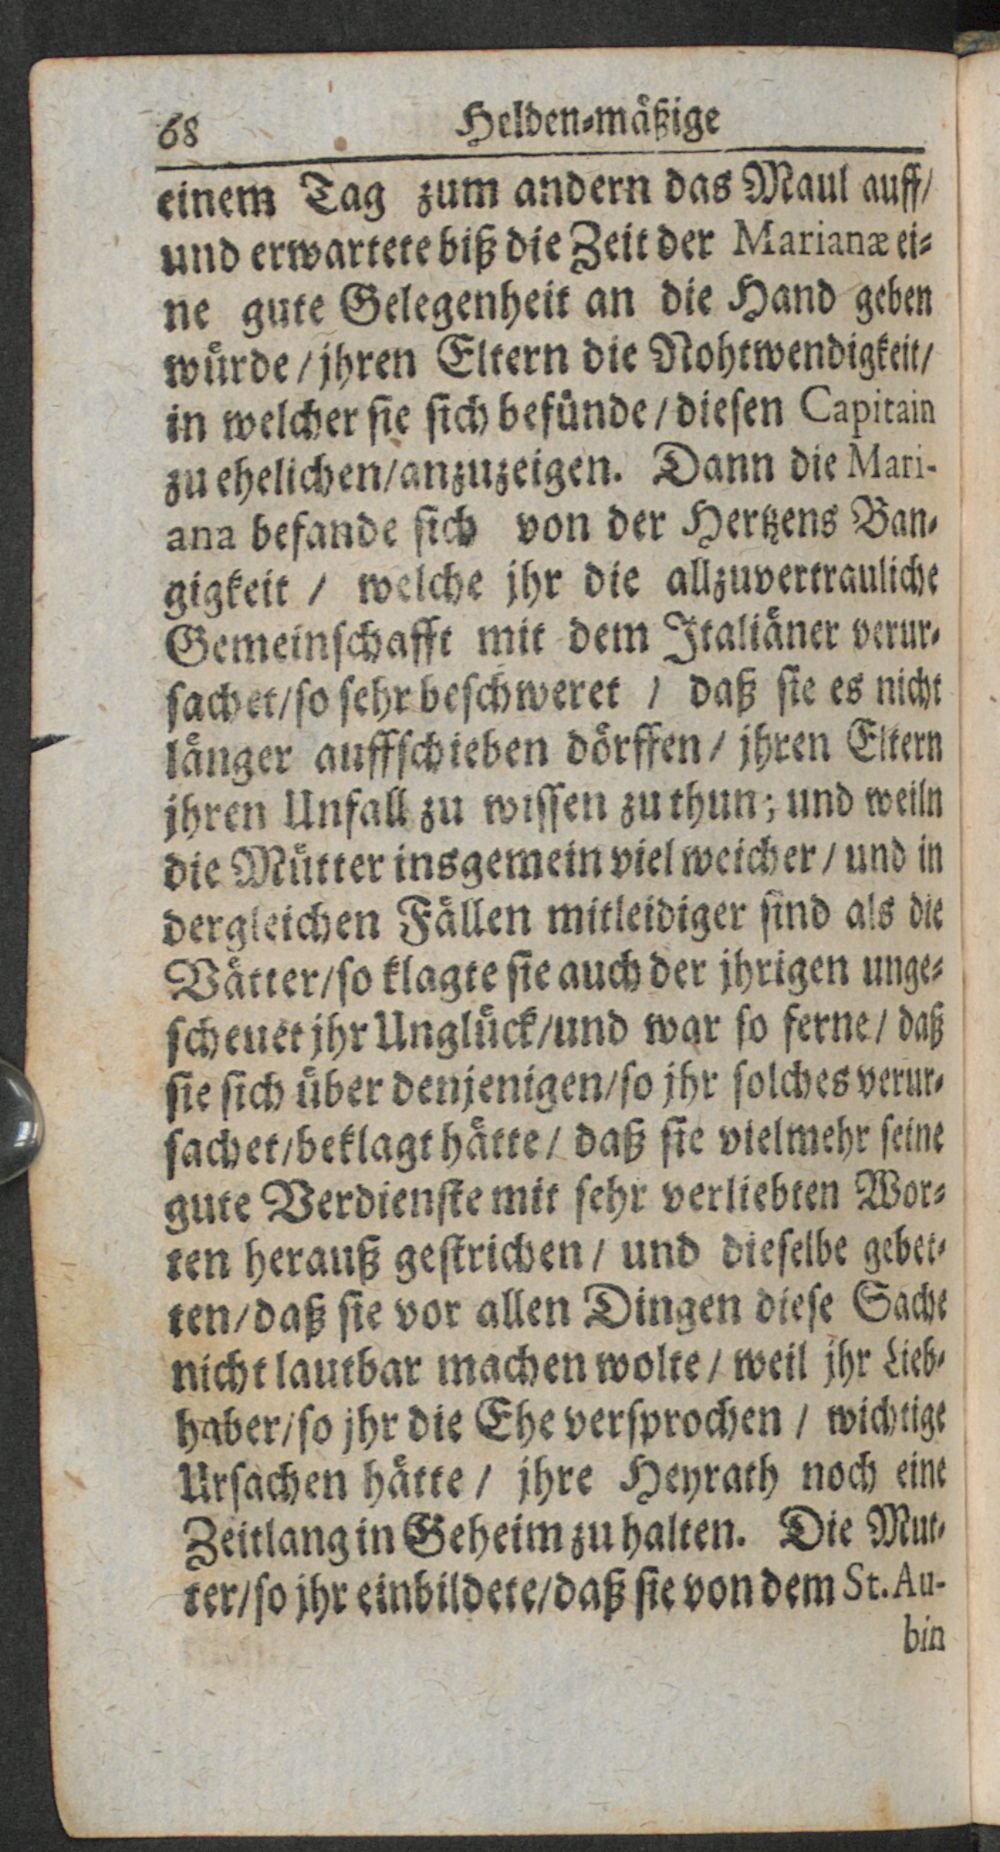 68 Helden-mäßige
einem Tag zum andern das Maul auff/
und erwartete biß die Zeit der Marianæ ei-
ne gute Gelegenheit an die Hand geben
würde / jhren Eltern die Nohtwendigkeit/
in welcher sie sich befünde / diesen Capitain
zu ehelichen/anzuzeigen. Dann die Mari-
ana befande sich von der Hertzens Ban-
gigkeit / welche jhr die allzuvertrauliche
Gemeinschafft mit dem Jtaliäner verur-
sachet/so sehr beschweret / daß sie es nicht
länger auffschieben dörffen / jhren Eltern
jhren Unfall zu wissen zu thun; und weiln
die Mütter insgemein viel weicher / und in
dergleichen Fällen mitleidiger sind als die
Vätter/so klagte sie auch der jhrigen unge-
scheuet jhr Unglück/und war so ferne / daß
sie sich über denjenigen/so jhr solches verur-
sachet/beklagt hätte / daß sie vielmehr seine
gute Verdienste mit sehr verliebten Wor-
ten herauß gestrichen / und dieselbe gebet-
ten/daß sie vor allen Dingen diese Sache
nicht lautbar machen wolte / weil jhr Lieb-
haber/so jhr die Ehe versprochen / wichtige
Ursachen hätte / jhre Heyrath noch eine
Zeitlang in Geheim zu halten. Die Mut-
ter/so jhr einbildete/daß sie von dem St. Au-
bin